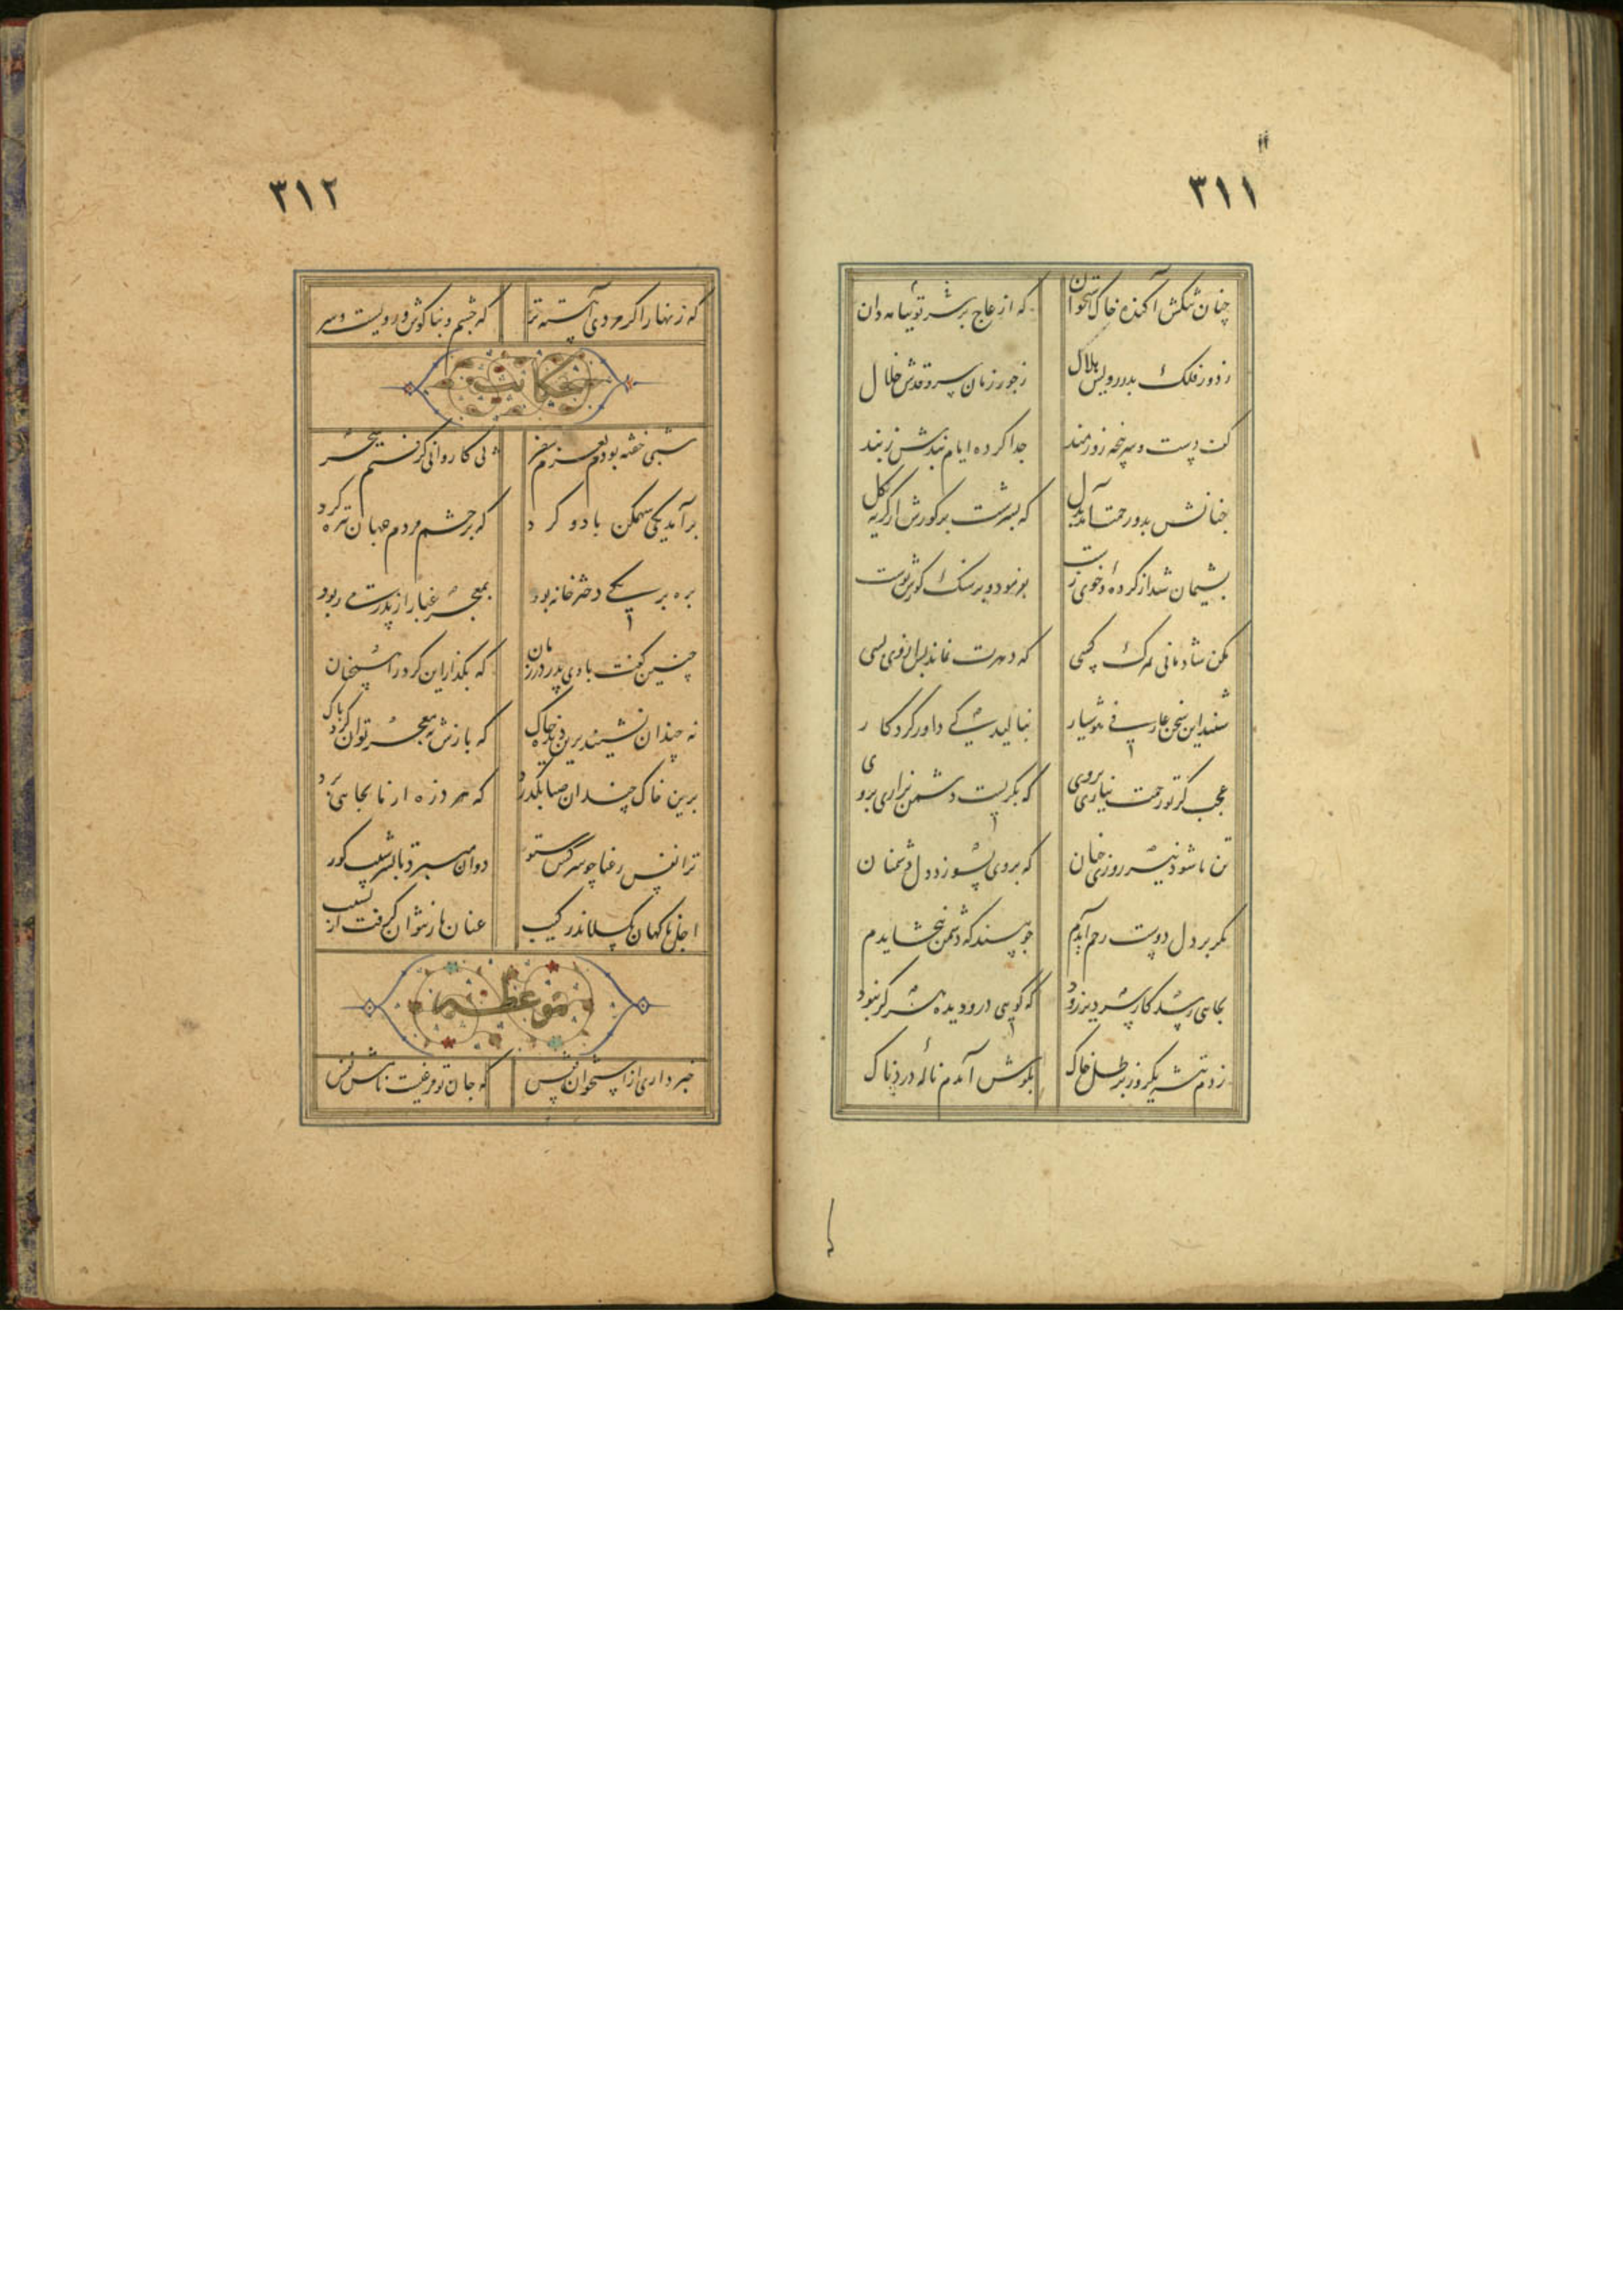 ۳۱۱
چنان تنگش آکنده خاک استخوان که از عاج پر سرمه توتیا دان
ز دور فلک بدر رویش هلال ز جور زمان سرو قدش خلال
کف دست و سرپنجه زورمند جدا کرده ایام بندش ز بند
چنانش بدو رحمت آمد ز دل که بسرشت بر گورش از گریه گل
پشیمان شد از کرده و خوی زشت بفرمود بر سنگ گورش نوشت
مکن شادمانی بمرگ کسی که دهرت نماند پس از وی بسی
شنید این سخن عارفی هوشیار بنالید کی داور کردگار
عجب گر تو رحمت نیاری بروی که بگریست دشمن بزاری بروی
تن ما شود نیز روزی چنان که بر وی بسوزد دل دشمنان
مگر بر دل دوست رحم آیدم چو بیند که دشمن بخشایدم
بجایی رسد کار سر دیر و زود که گویی درو دیده هرگز نبود
زدم تیشه یکروز بر تل خاک بگوش آمدم ناله دردناک
۳۱۲
که زنهار اگر مردی آهسته تر که چشم و بناگوش و رویست و سر
حکایت
شبی خفته بودم بعزم سفر پی کاروانی گرفتم سحر
برآمد یکی سهمگن باد و گرد که بر چشم مردم جهان تیره کرد
بره بر یکی دختر خانه بود بمعجر غبار از پدر می ربود
چنین گفت بادی پدر در زمان که بگذار این گرد را
نه چندان نشیند برین دیده خاک که بازش بمعجر توان کرد پاک
برین خاک چندان صبا بگذرد که هر ذره از ما بجایی برد
ترا نفس رعنا چو سرکش ستور دوان میبرد تا بسر شیب گور
اجل ناگهان بگسلاند رکیب عنان باز نتوان گرفت از نشیب
موعظه
خبر داری از استخوان قفس که جان تو مرغیست نامش نفس